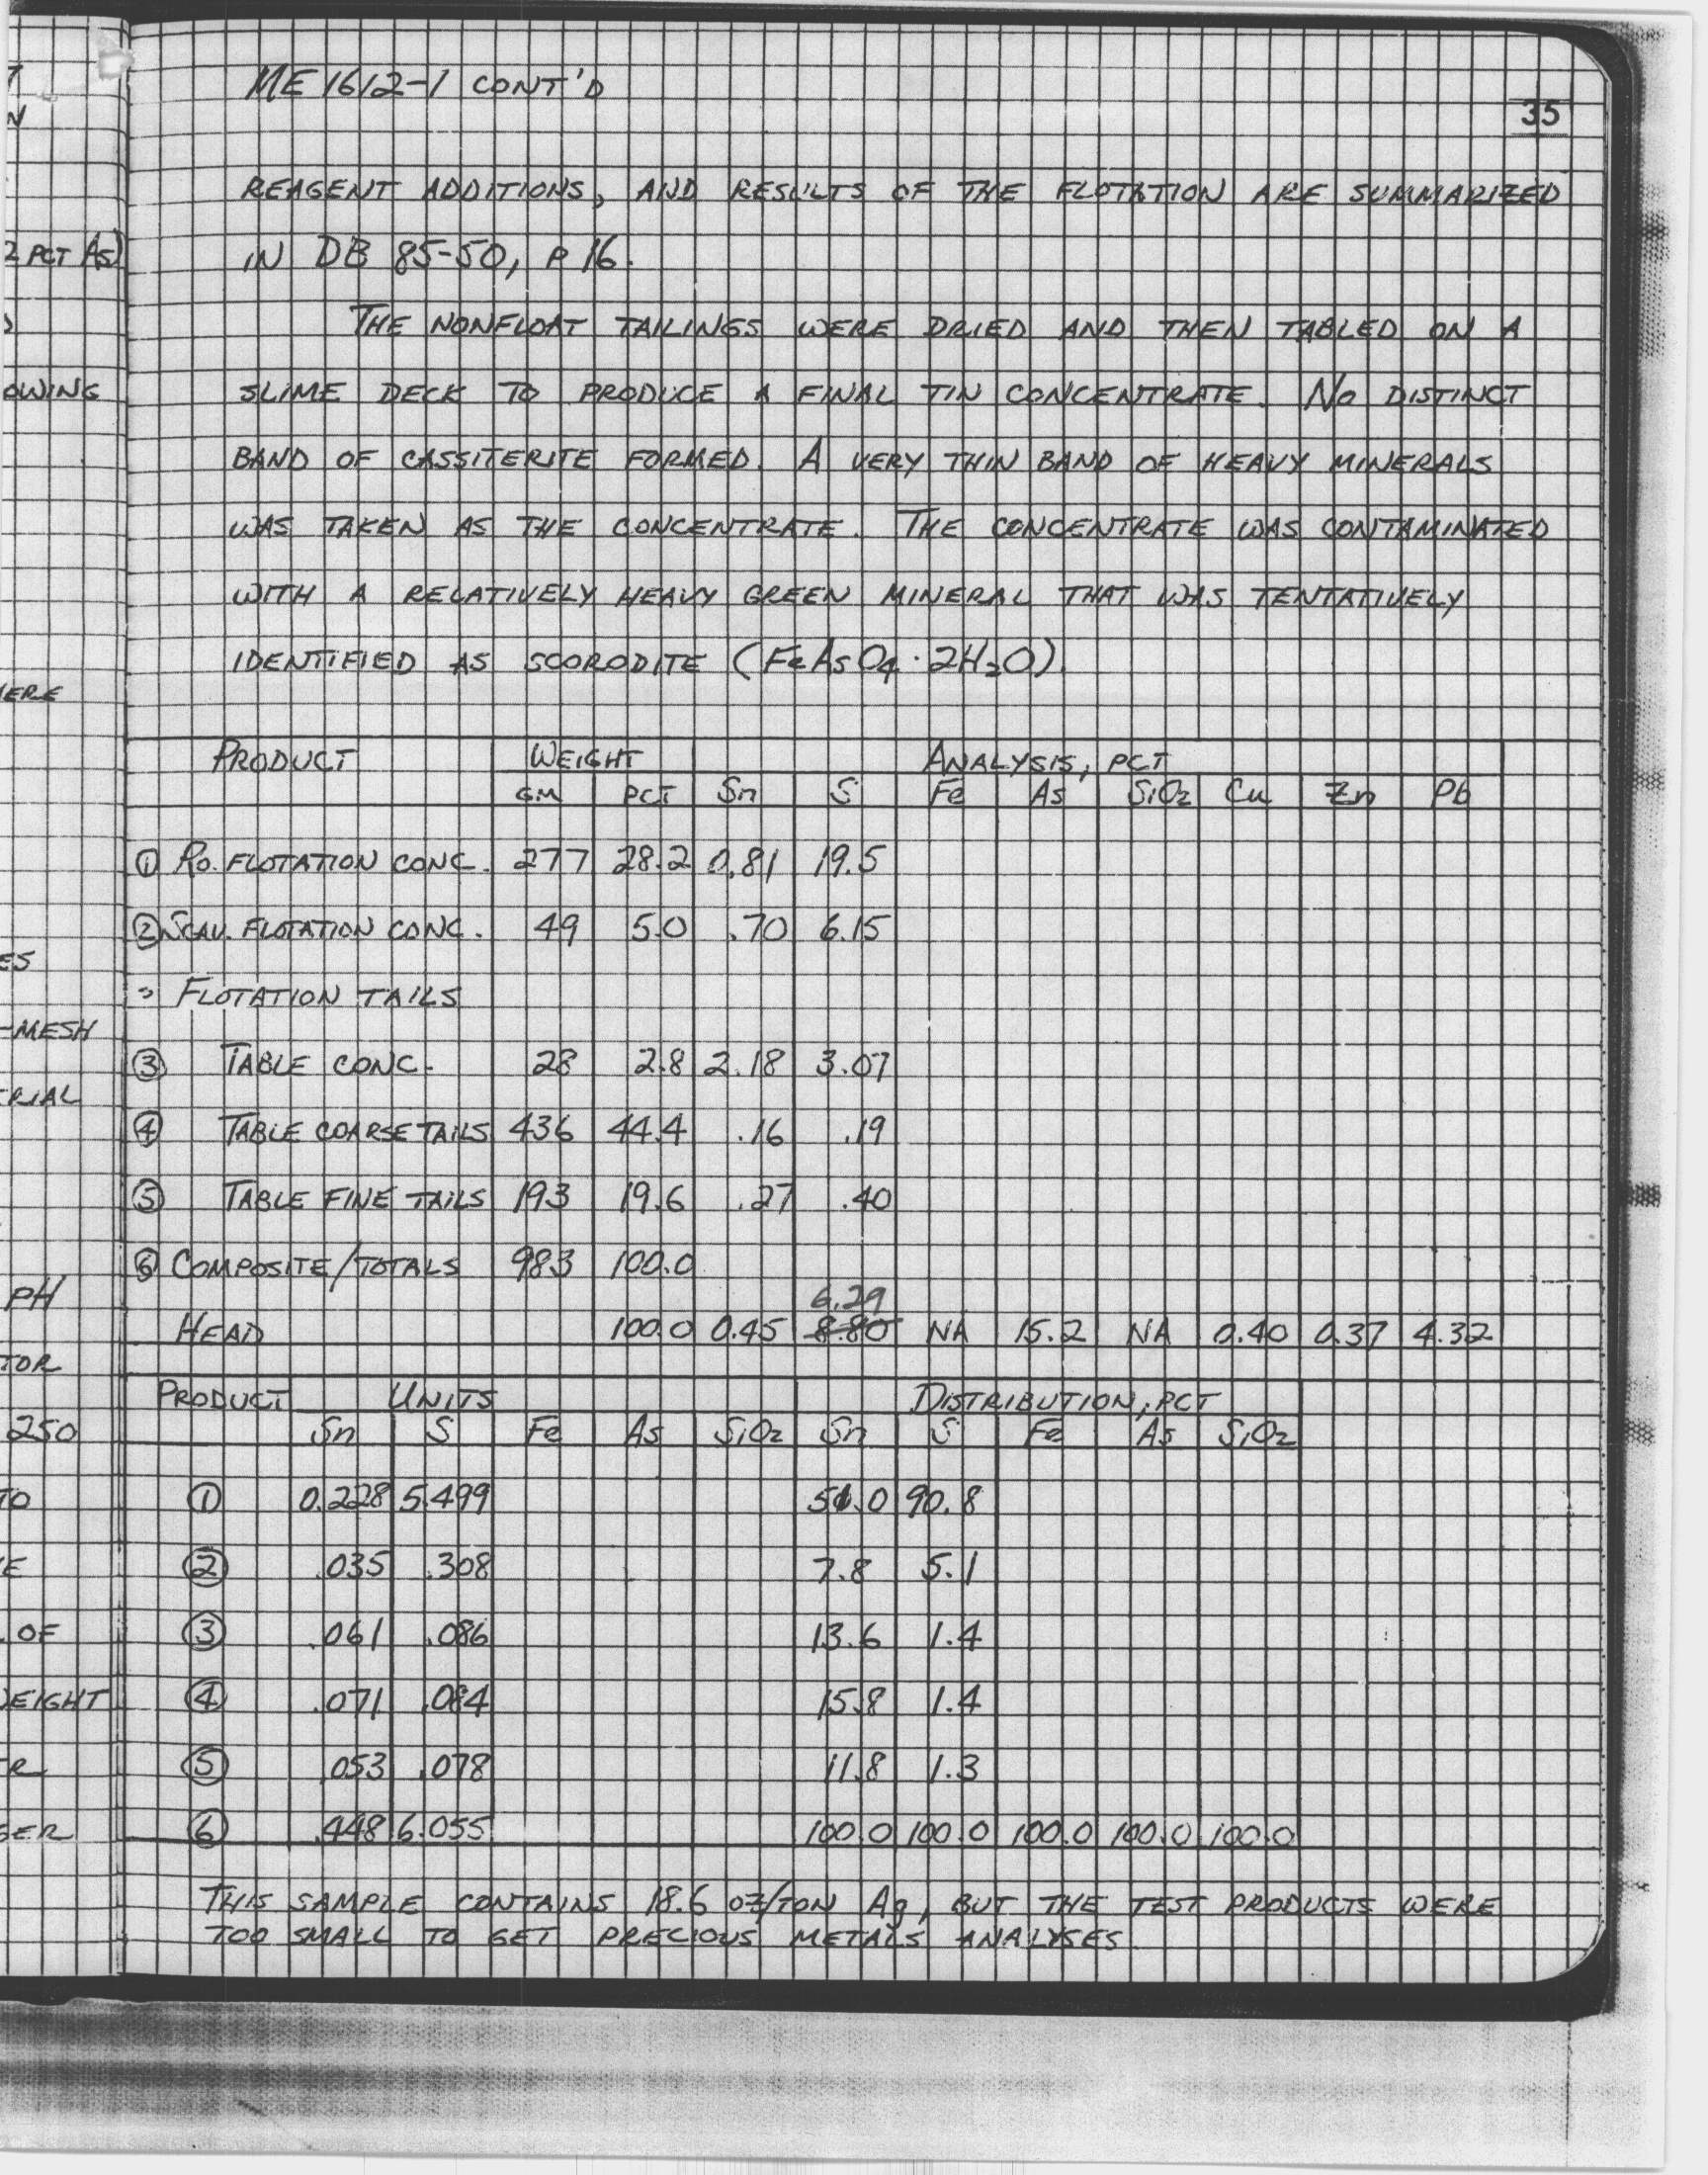 ME 1612-1 CONT'D
35
REAGENT ADDITIONS, AND RESULTS OF THE FLOTATION ARE SUMMARIZED
IN DB 85-50, P 16.
THE NONFLOAT TAILINGS WERE DRIED AND THEN TABLED ON A
SLIME DECK TO PRODUCE A FINAL TIN CONCENTRATE. NO DISTINCT
BAND OF CASSITERITE FORMED. A VERY THIN BAND OF HEAVY MINERALS
WAS TAKEN AS THE CONCENTRATE. THE CONCENTRATE WAS CONTAMINATED
WITH A RELATIVELY HEAVY GREEN MINERAL THAT WAS TENTATIVELY
IDENTIFIED AS SCORODITE (FeAsO4·2H2O).
PRODUCT WEIGHT ANALYSIS, PCT
GM PCT Sn S Fe As SiO2 Cu Zn Pb
① RO. FLOTATION CONC. 277 28.2 0.81 19.5
② SCAV. FLOTATION CONC. 49 5.0 .70 6.15
FLOTATION TAILS
③ TABLE CONC. 28 2.8 2.18 3.07
④ TABLE COARSE TAILS 436 44.4 .16 .19
⑤ TABLE FINE TAILS 193 19.6 .27 .40
⑥ COMPOSITE/TOTALS 983 100.0
6.29
HEAD 100.0 0.45 8.80 NA 15.2 NA 0.40 0.37 4.32
PRODUCT UNITS DISTRIBUTION, PCT
Sn S Fe As SiO2 Sn S Fe As SiO2
① 0.228 5.499 51.0 90.8
② .035 .308 7.8 5.1
③ .061 .086 13.6 1.4
④ .071 .084 15.8 1.4
⑤ .053 .078 11.8 1.3
⑥ .448 6.055 100.0 100.0 100.0 100.0 100.0
THIS SAMPLE CONTAINS 18.6 OZ/TON Ag, BUT THE TEST PRODUCTS WERE
TOO SMALL TO GET PRECIOUS METALS ANALYSES
2 PCT As)
OWING
ES
-MESH
PH
250
OF